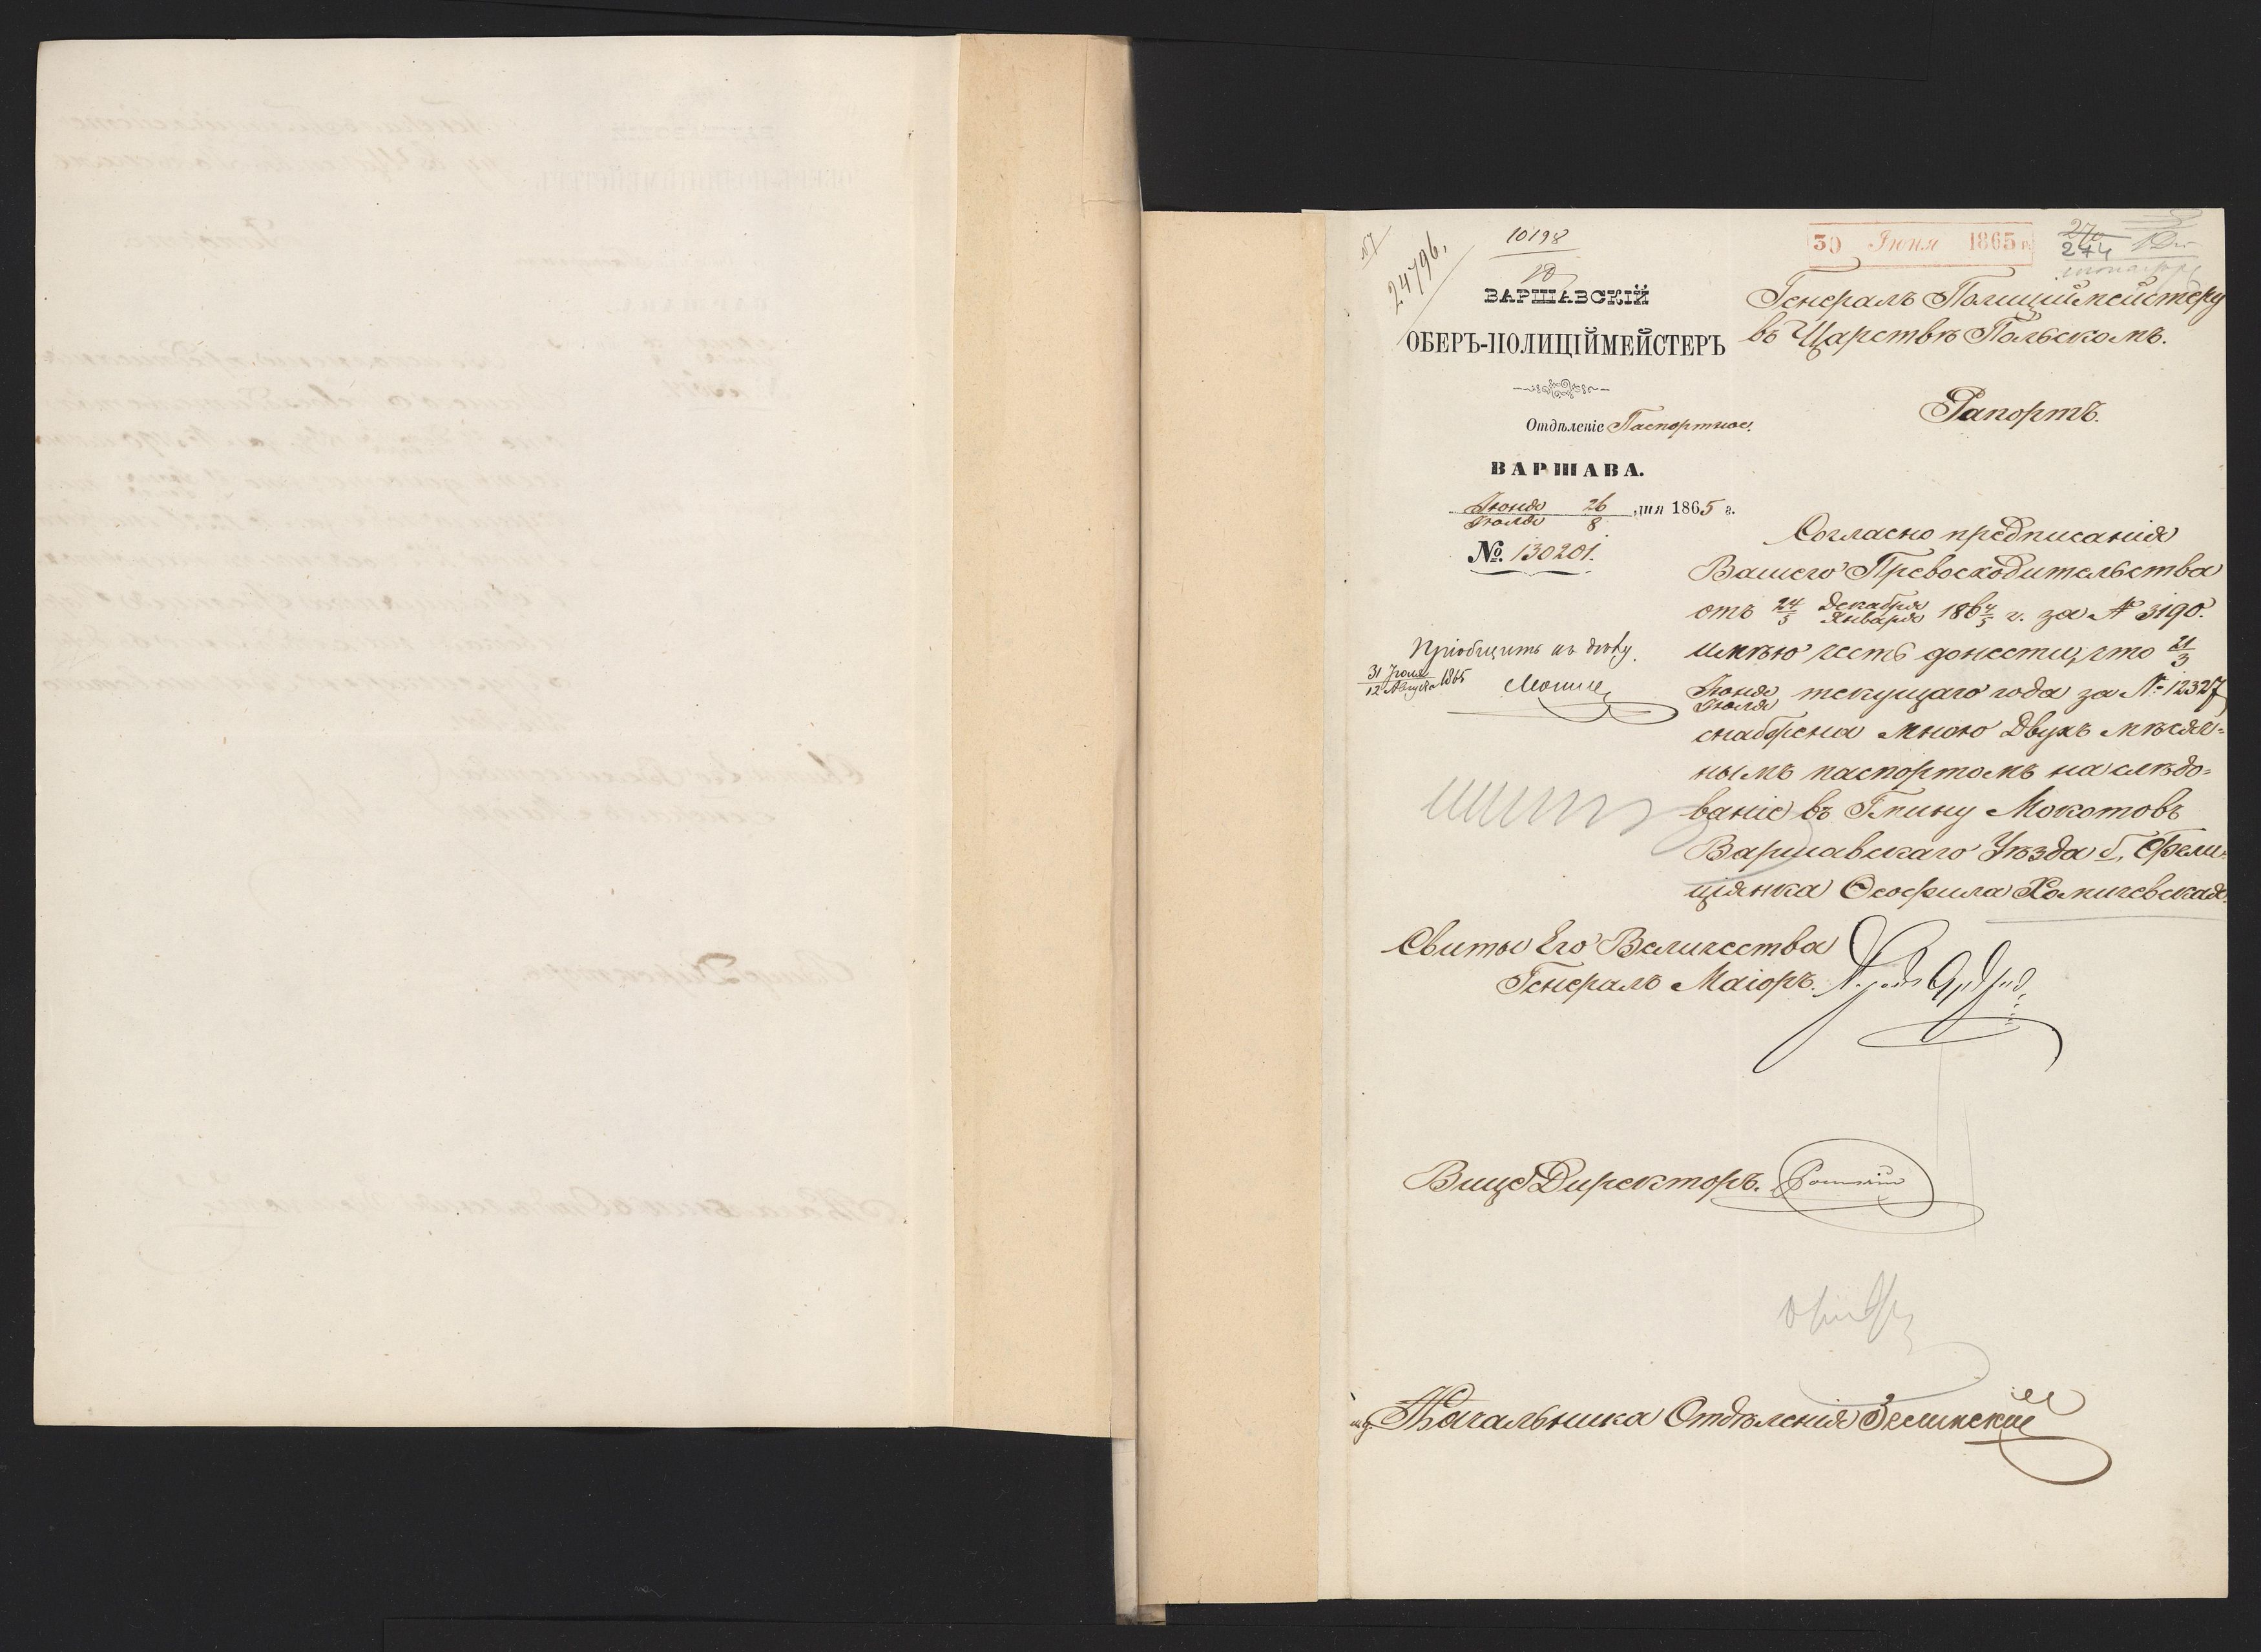 24796.
10198
ВАРШАВСКІЙ
ОБЕРЪ-ПОЛИЦІЙМЕЙСТЕРЪ
Отдѣленіе Паспортное.
ВАРШАВА.
Іюня 26 / Іюля 8 дня 1865 г.
№ 130201.
30 Іюня 1865 г.
270
274
Генералъ Полиціймейстеру
въ Царствѣ Польскомъ.
Рапортъ.
Согласно предписанія
Вашего Превосходительства
отъ 24/5 Декабря/Января 1864/5 г. за № 3190.
имѣю честь донести, что 21/3
Іюня/Іюля текущаго года за № 12327
снабжена мною двухъ мѣсяч=
нымъ паспортомъ на слѣдо=
ваніе въ Гмину Мокотовъ
Варшавскаго Уѣзда б. Фели=
ціянка Ѳеофила Хомичевская.
Пріобщить къ дѣлу.
31 Іюля / 12 Августа 1865
Свиты Его Величества
Генералъ Маіоръ.
Вице Директоръ.
и.д. Начальника Отдѣленія Зелинскій